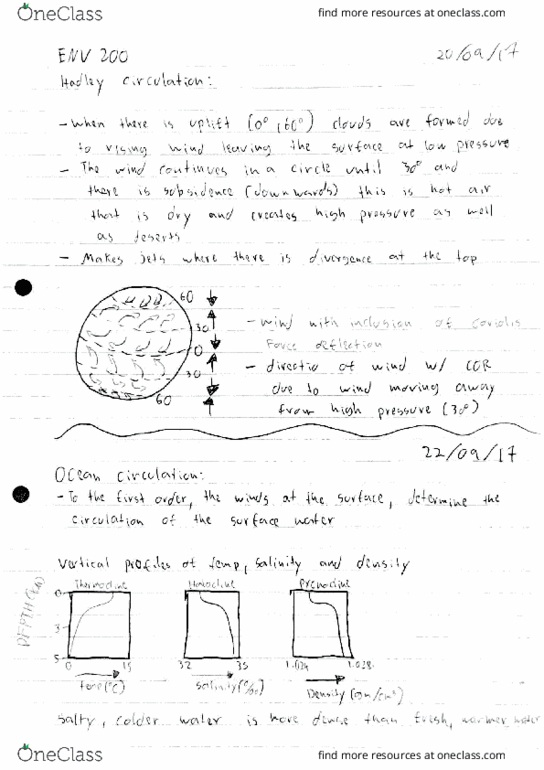 OneClass
find more resources at oneclass.com
ENV 200
20/09/17
Hadley circulation:
- When there is uplift (0°, 60°) clouds are formed due
to rising wind leaving the surface at low pressure
- The wind continues in a circle until 30° and
there is subsidence (downwards) this is hot air
that is dry and creates high pressure as well
as deserts
- Makes jets where there is divergence at the top
60
30
0
30
60
- wind with inclusion of coriolis
Force deflection
- directio of wind w/ COR
due to wind moving away
from high pressure (30°)
22/09/17
Ocean circulation:
- To the first order, the winds at the surface, determine the
circulation of the surface water
Vertical profiles of temp, salinity and density
Thermocline
Halocline
Pycnocline
DEPTH (km)
0
3
5
0 15
32 35
1.024 1.028
Temp (°C)
Salinity (‰)
Density (gm/cm³)
Salty, colder water is more dense than fresh, warmer water
OneClass
find more resources at oneclass.com